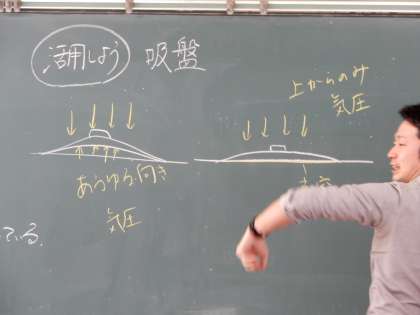 活用しよう 吸盤
上からのみ
気圧
あらゆる向き
気圧
ている。